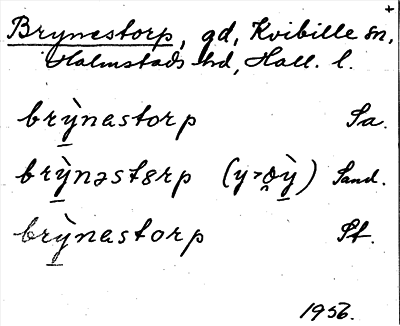 +
Brynestorp, gd, Kvibille sn,
Halmstads hd, Hall. l.
brỳ̲nastorp Sa.
brỳ̲nəstɵrp (y>ø̯ỳ̲) Sand.
brỳ̲nastorp St.
1956.